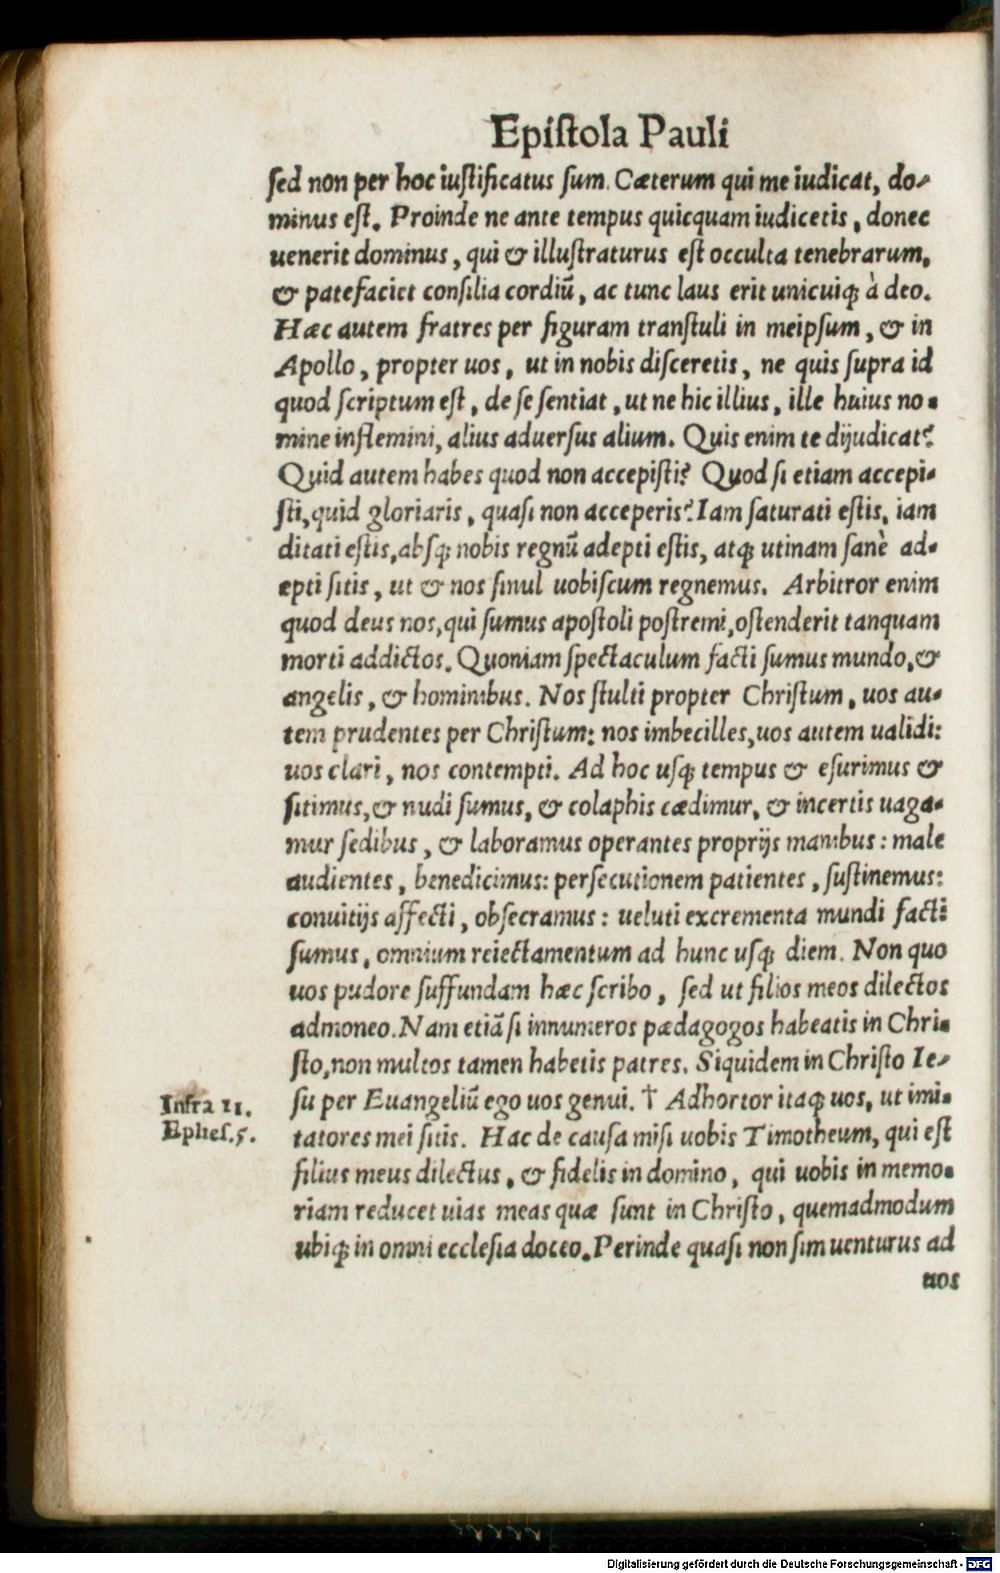 Epiſtola Pauli
ſed non per hoc iuſtificatus ſum. Cæterum qui me iudicat, do-
minus eſt. Proinde ne ante tempus quicquam iudicetis, donec
uenerit dominus, qui & illuſtraturus eſt occulta tenebrarum,
& patefaciet conſilia cordiũ, ac tunc laus erit unicuiqꝫ à deo.
Hæc autem fratres per figuram tranſtuli in meipſum, & in
Apollo, propter uos, ut in nobis diſceretis, ne quis ſupra id
quod ſcriptum eſt, de ſe ſentiat, ut ne hic illius, ille huius no-
mine inflemini, alius aduerſus alium. Quis enim te dijudicat?
Quid autem habes quod non accepiſti? Quod ſi etiam accepi-
ſti, quid gloriaris, quaſi non acceperis? Iam ſaturati eſtis, iam
ditati eſtis, abſqꝫ nobis regnũ adepti eſtis, atqꝫ utinam ſanè ad-
epti ſitis, ut & nos ſimul uobiſcum regnemus. Arbitror enim
quod deus nos, qui ſumus apoſtoli poſtremi, oſtenderit tanquam
morti addictos. Quoniam ſpectaculum facti ſumus mundo, &
angelis, & hominibus. Nos ſtulti propter Chriſtum, uos au-
tem prudentes per Chriſtum: nos imbecilles, uos autem ualidi:
uos clari, nos contempti. Ad hoc uſqꝫ tempus & eſurimus &
ſitimus, & nudi ſumus, & colaphis cædimur, & incertis uaga-
mur ſedibus, & laboramus operantes proprijs manibus: male
audientes, benedicimus: perſecutionem patientes, ſuſtinemus:
conuitijs affecti, obſecramus: ueluti excrementa mundi facti
ſumus, omnium reiectamentum ad hunc uſqꝫ diem. Non quo
uos pudore ſuffundam hæc ſcribo, ſed ut filios meos dilectos
admoneo. Nam etiã ſi innumeros pædagogos habeatis in Chri-
ſto, non multos tamen habetis patres. Siquidem in Chriſto Ie-
ſu per Euangeliũ ego uos genui. † Adhortor itaqꝫ uos, ut imi-
Infra 11.
Epheſ. 5.
tatores mei ſitis. Hac de cauſa miſi uobis Timotheum, qui eſt
filius meus dilectus, & fidelis in domino, qui uobis in memo-
riam reducet uias meas quæ ſunt in Chriſto, quemadmodum
ubiqꝫ in omni eccleſia doceo. Perinde quaſi non ſim uenturus ad
uos
Digitalisierung gefördert durch die Deutsche Forschungsgemeinschaft - DFG